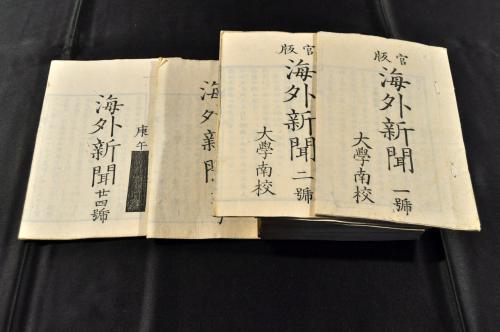 官版
海外新聞 一號
大學南校
官版
海外新聞 二號
大學南校
海外新
庚午
海外新聞 廿四號